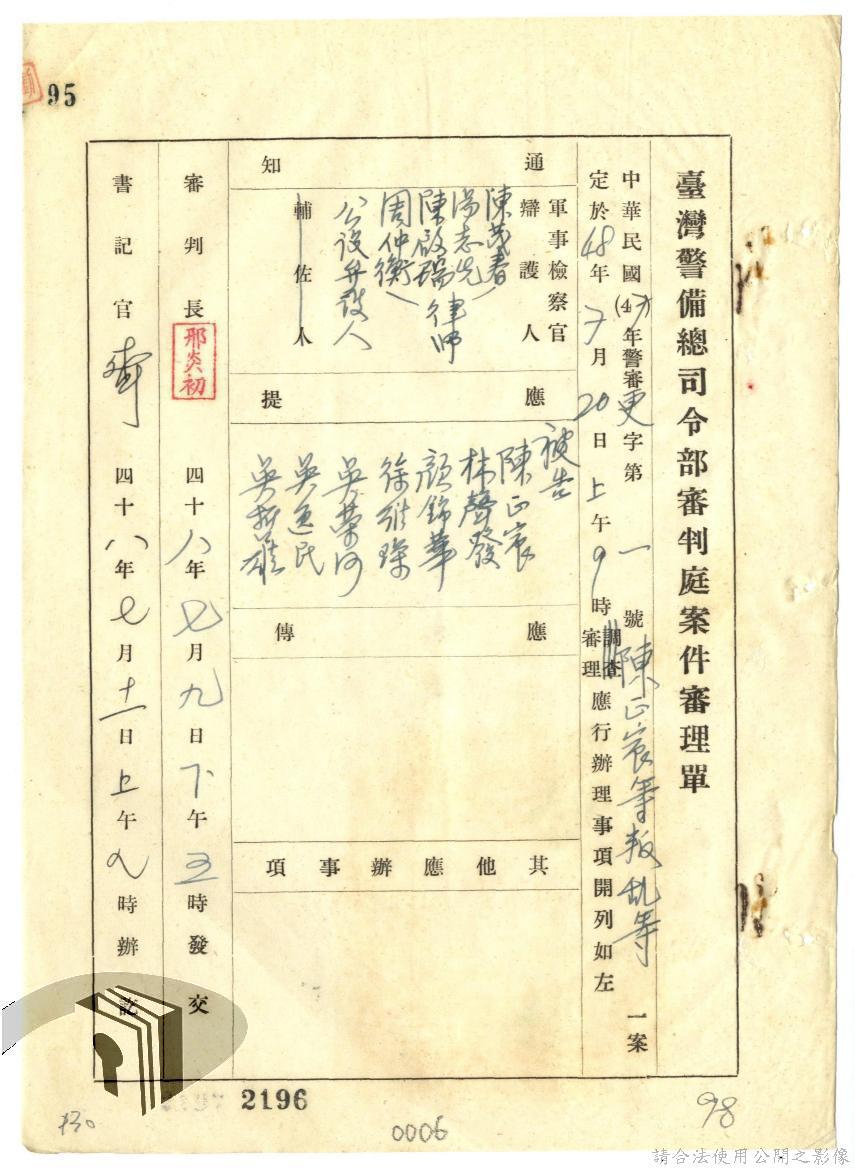 95
臺灣警備總司令部審判庭案件審理單
中華民國(47)年警審更字第一號陳正宸等叛乱等一案
定於48年7月20日上午9時調查審理應行辦理事項開列如左
通知
軍事檢察官
辯護人
陳茂春
湯志先
陳啟瑞律师
周仲衡
公设弁護人
輔佐人
應提
被告
陳正宸
林聲發
顏錦華
徐
吳榮河
吳逸民
吳
應傳
其他應辦事項
審判長
邢炎初
四十八年七月九日下午五時發交
書記官
四十八年七月十一日上午九時辦訖
2196
0006
98
請合法使用公開之影像